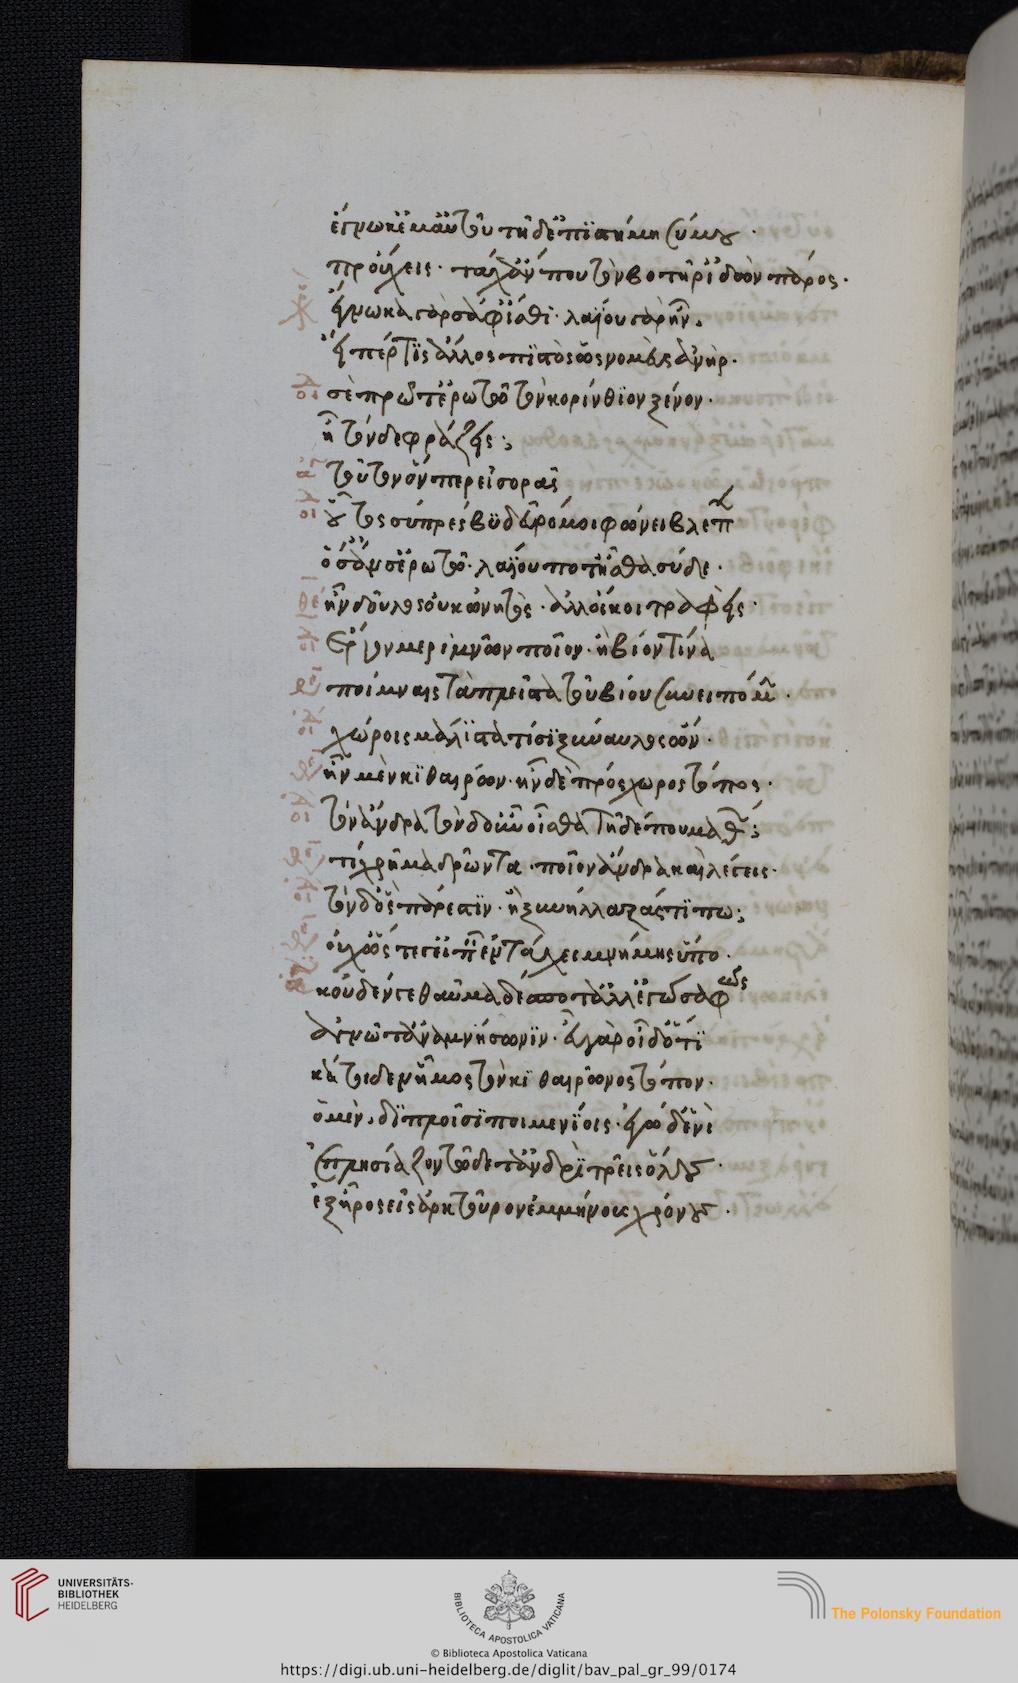 ἔγνωκ' ἐμαυτοῦ τῇ δ' ἐπιστήμῃ σύ μου·
προὔχεις· τάχ' ἄν που τὸν βοτῆρ' ἰδὼν πάρος·
χο ἔγνωκα γὰρ σάφ' ἴσθι· λαΐου γὰρ ἦν.
εἴπέρ τις ἄλλος πιστὸς ὡς νομεὺς ἀνήρ·
οι σὲ πρῶτ' ἐρωτῶ τὸν κορίνθιον ξένον·
ἢ τόνδε φράζεις;
ἀγ τοῦτον ὅνπερ εἰσορᾷς
οι οὗτος σὺ πρέσβυ δεῦρό μοι φώνει βλέπων
ὅσ' ἄν σ' ἐρωτῶ· λαΐου ποτ' ἦσθα σύδε·
θε ἦν δοῦλος οὐκ ὠνητός· ἀλλ' οἴκοι τραφείς·
οι ἔργον μεριμνῶν ποῖον· ἢ βίον τίνα
θε ποίμναις τὰ πλεῖστα τοῦ βίου συνειπόμην·
οι χώροις μάλιστα τίσι ξύναυλος ὤν·
θε ἦν μὲν κιθαιρών· ἦν δὲ πρόσχωρος τόπος·
οι τὸν ἄνδρα τόνδ' οὖν οἶσθα τῇδέ που μαθών;
θε τί χρῆμα δρῶντα· ποῖον ἄνδρα καὶ λέγεις·
οι τόνδ' ὃς πάρεστιν· ἢ ξυνήλλαξάς τί πω;
θε οὐχ ὥστε γ' εἰπεῖν ἐν τάχει μνήμης ὕπο·
ἀγ κοὐδέν γε θαῦμα δέσποτ' ἀλλ' ἐγὼ σαφῶς
ἀγνῶτ' ἀναμνήσω νιν· εὖ γὰρ οἶδ' ὅτι
κάτοιδεν ἦμος τὸν κιθαιρῶνος τόπον·
ὁ μὲν διπλοῖσι ποιμενίοις· ἐγὼ δ' ἑνὶ
ἐπλησίαζον τῷδε τἀνδρὶ τρεῖς ὅλους·
ἐξ ἦρος εἰς ἀρκτοῦρον ἐμμήνους χρόνους·
UNIVERSITÄTS-
BIBLIOTHEK
HEIDELBERG
BIBLIOTECA APOSTOLICA VATICANA
The Polonsky Foundation
© Biblioteca Apostolica Vaticana
https://digi.ub.uni-heidelberg.de/diglit/bav_pal_gr_99/0174